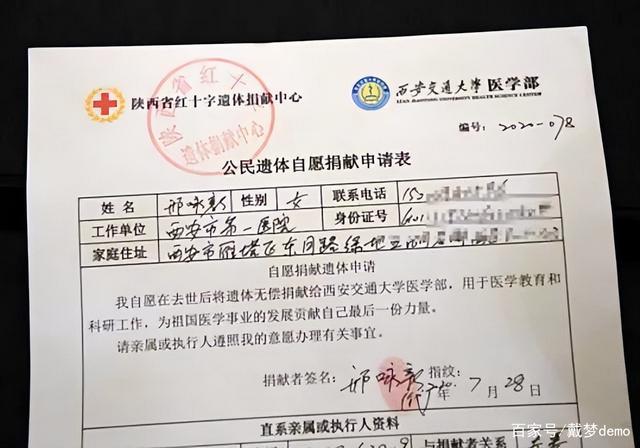 陕西省红十字遗体捐献中心
陕西省红十
遗体捐献中心
西安交通大学 医学部
XI'AN JIAOTONG UNIVERSITY HEALTH SCIENCE CENTER
编号:2020-078
公民遗体自愿捐献申请表
姓名 邢咏新 性别 女 联系电话 15
工作单位 西安市第一医院 身份证号
家庭住址 西安市雁塔区东月路绿地
自愿捐献遗体申请
我自愿在去世后将遗体无偿捐献给西安交通大学医学部,用于医学教育和
科研工作,为祖国医学事业的发展贡献自己最后一份力量。
请亲属或执行人遵照我的意愿办理有关事宜。
捐献者签名: 邢咏新 指纹:
年 7 月 28 日
直系亲属或执行人资料
与捐献者关系
百家号/戴梦demo